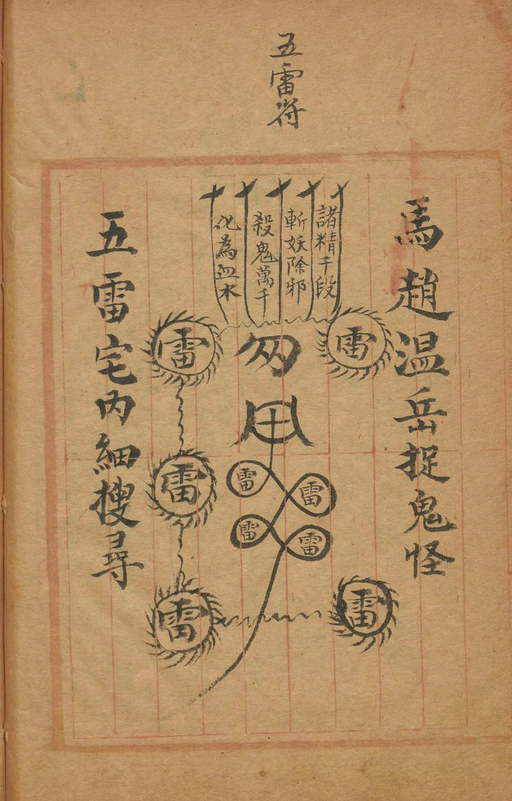 五雷符
馬趙温岳捉鬼怪
諸精千段
斬妖除邪
殺鬼萬千
化為血水
雷
雷
雷
雷
雷
雷
雷
雷
雷
五雷宅內細搜尋